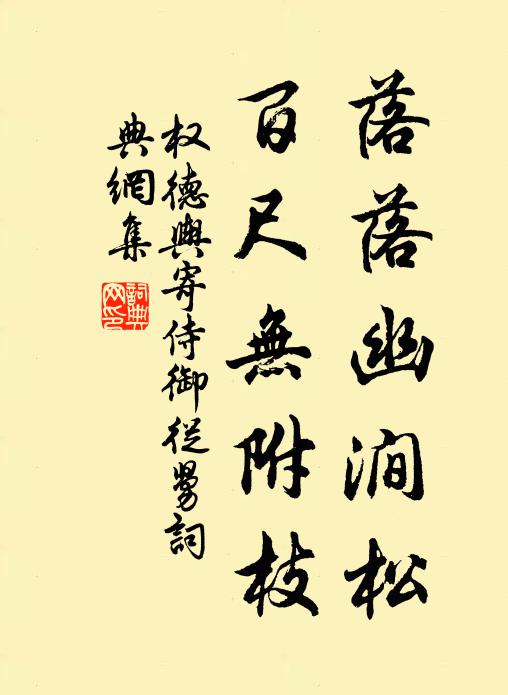 落落幽澗松
百尺無附枝
权德輿寄侍御從舅詞
典網集
詞典网印